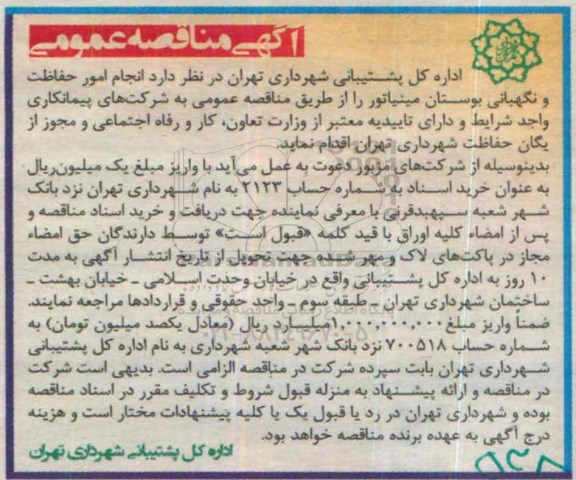 آگهی مناقصه عمومی
اداره کل پشتیبانی شهرداری تهران در نظر دارد انجام امور حفاظت
و نگهبانی بوستان مینیاتور را از طریق مناقصه عمومی به شرکت‌های پیمانکاری
واجد شرایط و دارای تاییدیه معتبر از وزارت تعاون، کار و رفاه اجتماعی و مجوز از
یگان حفاظت شهرداری تهران اقدام نماید.
بدینوسیله از شرکت‌های مزبور دعوت به عمل می‌آید با واریز مبلغ یک میلیون‌ریال
به عنوان خرید اسناد به شماره حساب ۲۱۲۳ به نام شهرداری تهران نزد بانک
شهر شعبه سپهبدقرنی با معرفی نماینده جهت دریافت و خرید اسناد مناقصه و
پس از امضاء کلیه اوراق با قید کلمه «قبول است» توسط دارندگان حق امضاء
مجاز در پاکت‌های لاک و مهر شده جهت تحویل از تاریخ انتشار آگهی به مدت
۱۰ روز به اداره کل پشتیبانی واقع در خیابان وحدت اسلامی ـ خیابان بهشت ـ
ساختمان شهرداری تهران ـ طبقه سوم ـ واحد حقوقی و قراردادها مراجعه نمایند.
ضمناً واریز مبلغ ۱,۰۰۰,۰۰۰,۰۰۰میلیارد ریال (معادل یکصد میلیون تومان) به
شماره حساب ۷۰۰۵۱۸ نزد بانک شهر شعبه شهرداری به نام اداره کل پشتیبانی
شهرداری تهران بابت سپرده شرکت در مناقصه الزامی است. بدیهی است شرکت
در مناقصه و ارائه پیشنهاد به منزله قبول شروط و تکلیف مقرر در اسناد مناقصه
بوده و شهرداری تهران در رد یا قبول یک یا کلیه پیشنهادات مختار است و هزینه
درج آگهی به عهده برنده مناقصه خواهد بود.
اداره کل پشتیبانی شهرداری تهران